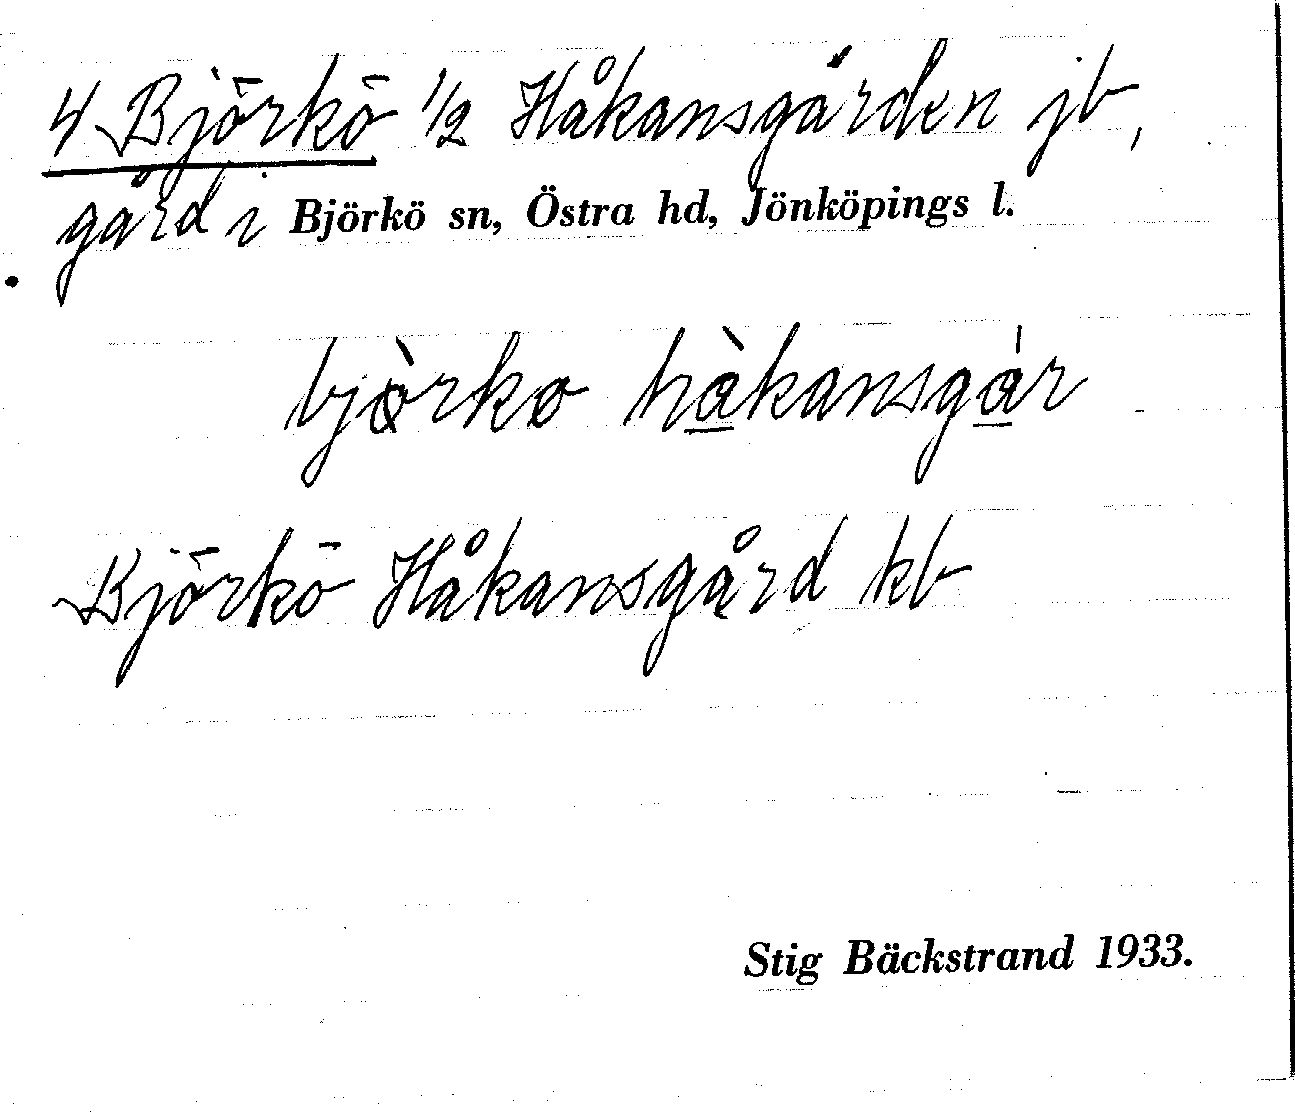 4 Björkö 1/2 Håkansgården jb,
gård i Björkö sn, Östra hd, Jönköpings l.
bjò̱rko hà̱kansga̱̍r
Björkö Håkansgård kb
Stig Bäckstrand 1933.